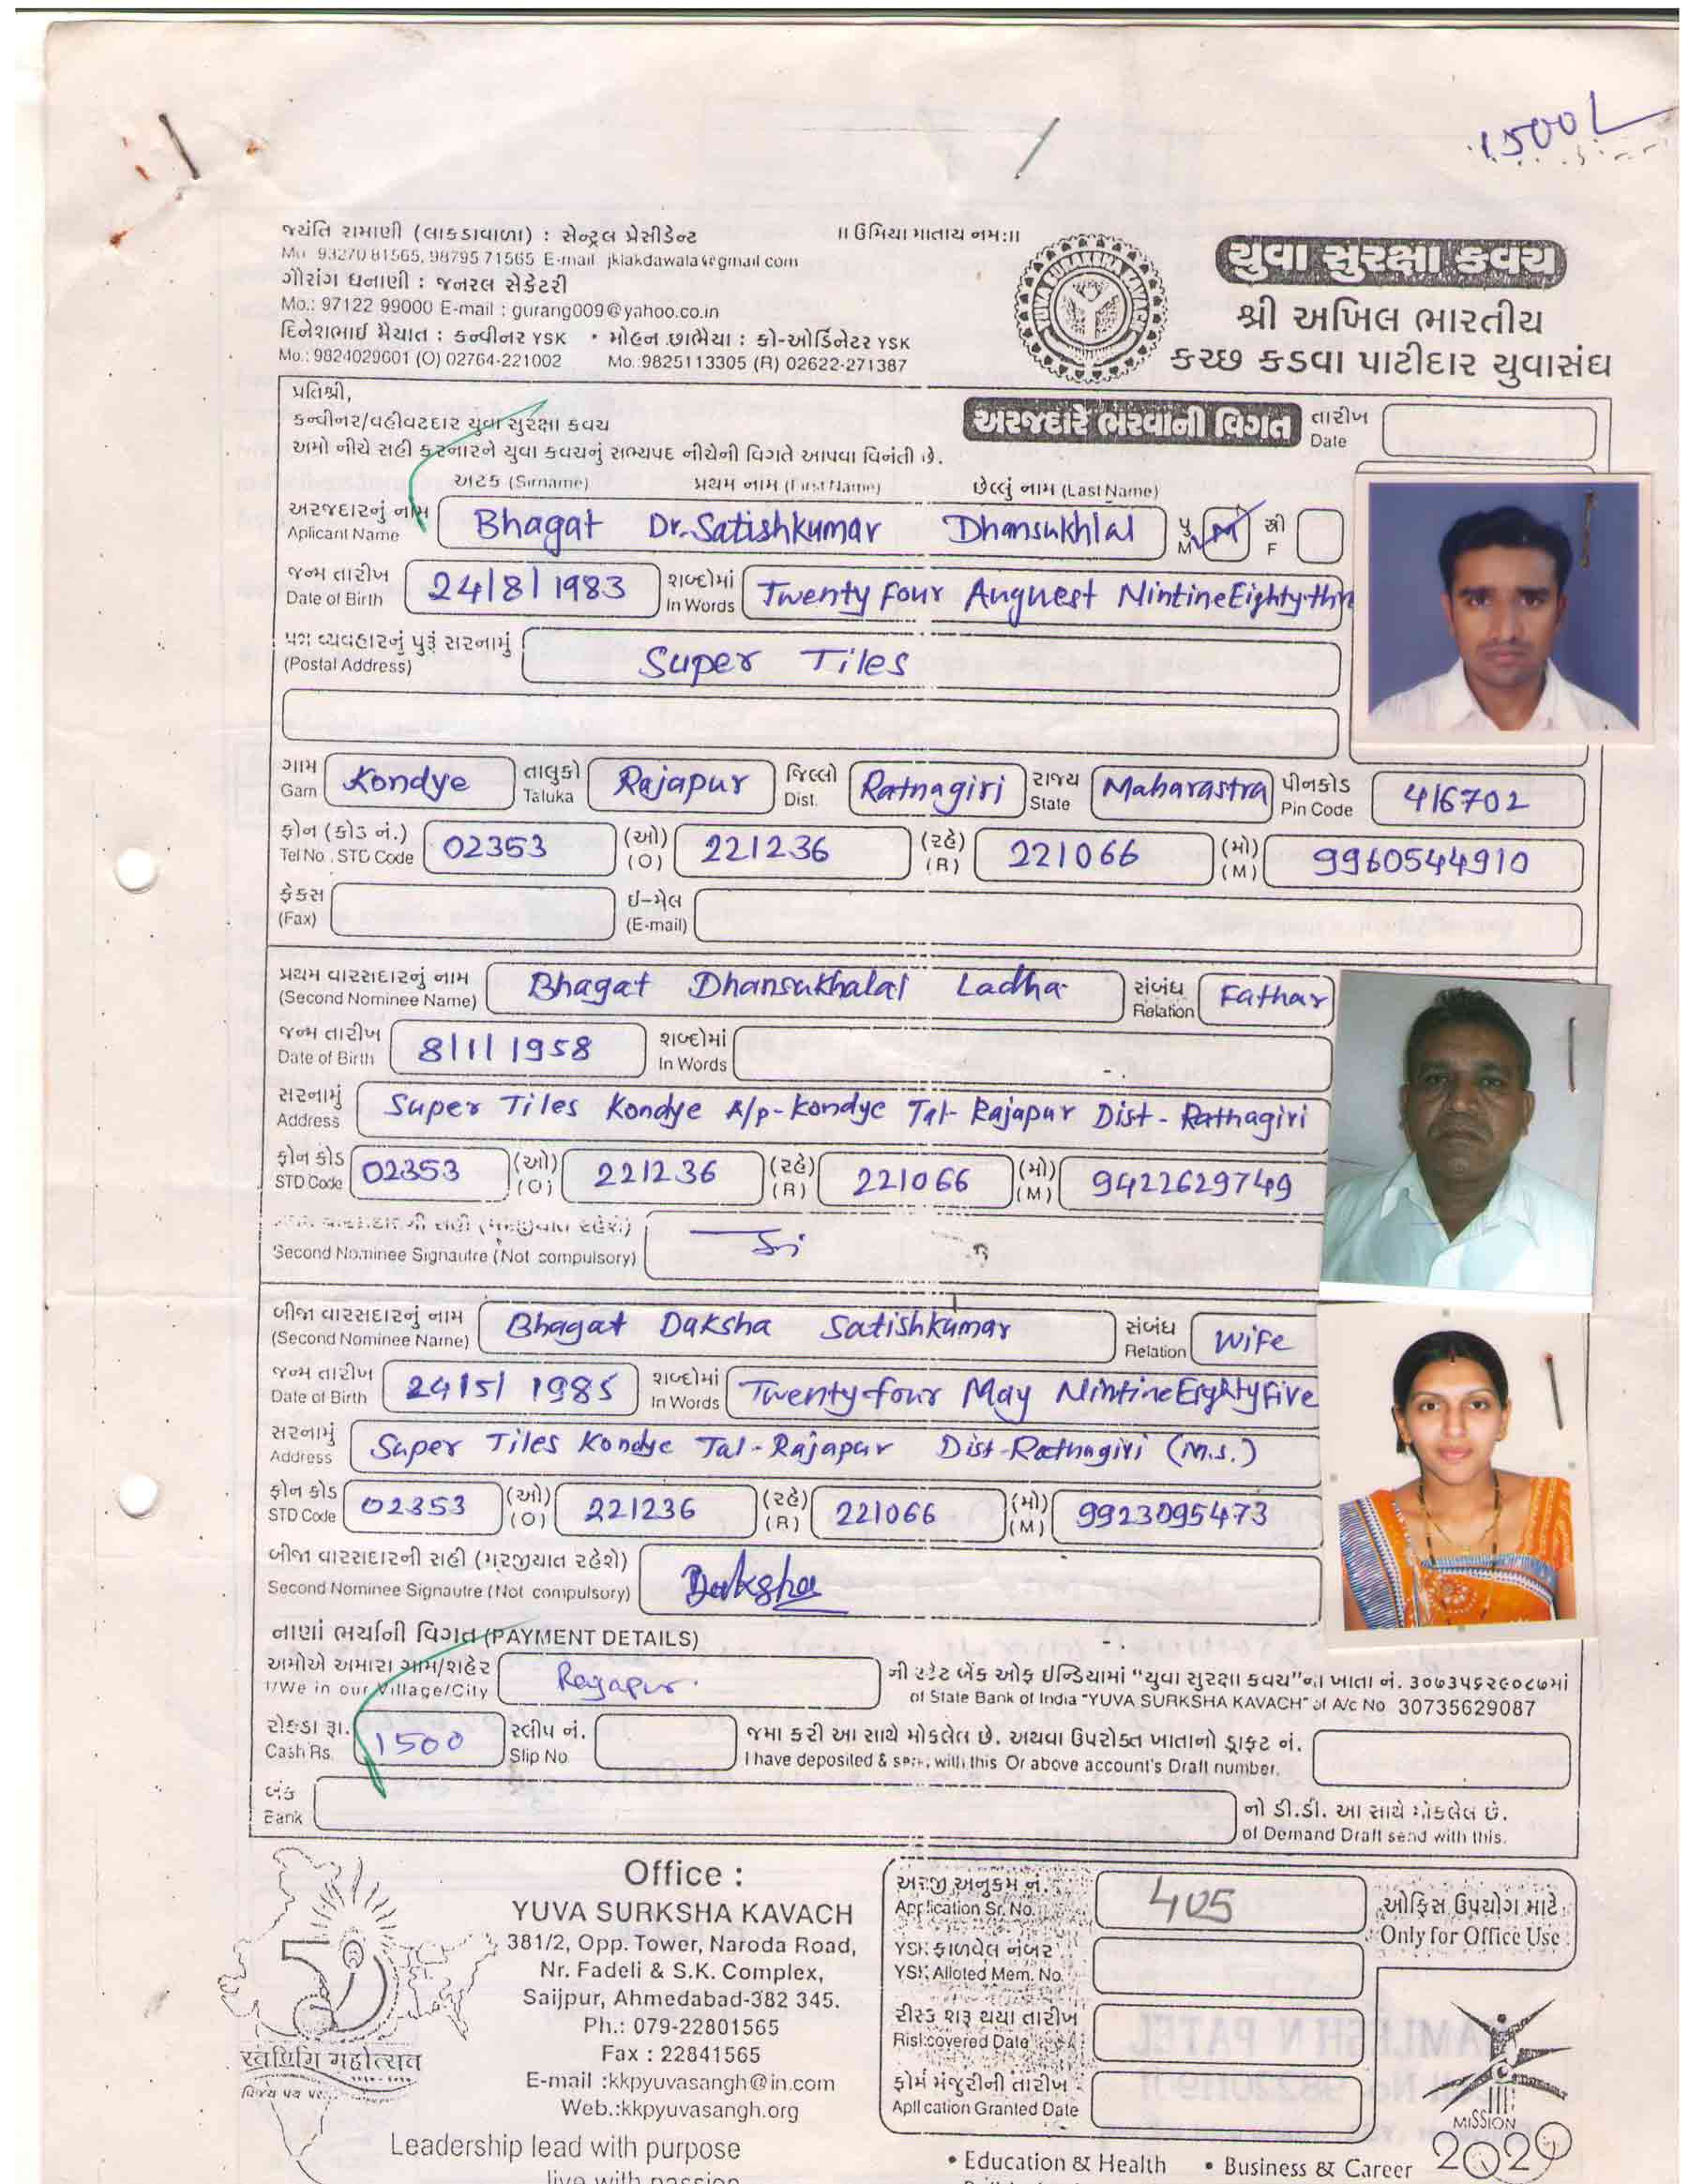 1500/-
જયંતિ રામાણી (લાકડાવાળા) : સેન્ટ્રલ પ્રેસીડેન્ટ
॥ ઉમિયા માતાય નમઃ॥
Mo. 93270 81565, 98795 71565 E-mail jklakdawala@gmail.com
ગૌરાંગ ધનાણી : જનરલ સેક્રેટરી
Mo.: 97122 99000 E-mail : gurang009@yahoo.co.in
દિનેશભાઈ મૈયાત : કન્વીનર YSK • મોહન છાભૈયા : કો-ઓર્ડિનેટર YSK
Mo.: 9824029601 (O) 02764-221002 Mo.:9825113305 (R) 02622-271387
YUVA SURAKSHA KAVACH
યુવા સુરક્ષા કવચ
શ્રી અખિલ ભારતીય
કચ્છ કડવા પાટીદાર યુવાસંઘ
પ્રતિશ્રી,
કન્વીનર/વહીવટદાર યુવા સુરક્ષા કવચ
અરજદારે ભરવાની વિગત તારીખ
Date
અમો નીચે સહી કરનારને યુવા કવચનું સભ્યપદ નીચેની વિગતે આપવા વિનંતી છે.
અટક (Sirname) પ્રથમ નામ (First Name) છેલ્લું નામ (Last Name)
અરજદારનું નામ
Aplicant Name Bhagat Dr.Satishkumar Dhansukhlal પુ M સ્ત્રી F
જન્મ તારીખ શબ્દોમાં
Date of Birth 24/8/1983 In Words Twenty Four Anguest NintineEighty
પત્ર વ્યવહારનું પુરૂં સરનામું
(Postal Address) Super Tiles
ગામ તાલુકો જિલ્લો રાજ્ય પીનકોડ
Gam Kondye Taluka Rajapur Dist. Ratnagiri State Maharastra Pin Code 416702
ફોન (કોડ નં.) (ઓ) (રહે) (મો)
Tel No. STD Code 02353 (O) 221236 (R) 221066 (M) 9960544910
ફેકસ ઈ-મેલ
(Fax) (E-mail)
પ્રથમ વારસદારનું નામ સંબંધ
(Second Nominee Name) Bhagat Dhansukhalal Ladha Relation Fathar
જન્મ તારીખ શબ્દોમાં
Date of Birth 8/1/1958 In Words
સરનામું
Address Super Tiles Kondye A/p-Kondye Tal-Rajapur Dist-Ratnagiri
ફોન કોડ (ઓ) (રહે) (મો)
STD Code 02353 (O) 221236 (R) 221066 (M) 9422629749
Second Nominee Signautre (Not compulsory)
બીજા વારસદારનું નામ સંબંધ
(Second Nominee Name) Bhagat Daksha Satishkumar Relation Wife
જન્મ તારીખ શબ્દોમાં
Date of Birth 24/5/1985 In Words Twenty four May NintineEightyFive
સરનામું
Address Super Tiles Kondye Tal-Rajapur Dist-Ratnagiri (M.S.)
ફોન કોડ (ઓ) (રહે) (મો)
STD Code 02353 (O) 221236 (R) 221066 (M) 9923095473
બીજા વારસદારની સહી (મરજીયાત રહેશે)
Second Nominee Signautre (Not compulsory) Daksha
નાણાં ભર્યાની વિગત (PAYMENT DETAILS)
અમોએ અમારા ગામ/શહેર ની સ્ટેટ બેંક ઓફ ઇન્ડિયામાં "યુવા સુરક્ષા કવચ"ના ખાતા નં. ૩૦૭૩૫૬૨૯૦૮૭માં
I/We in our Village/City Rajapur. of State Bank of India "YUVA SURKSHA KAVACH" of A/c No 30735629087
રોકડા રૂા. સ્લીપ નં. જમા કરી આ સાથે મોકલેલ છે. અથવા ઉપરોક્ત ખાતાનો ડ્રાફ્ટ નં.
Cash Rs. 1500 Slip No. I have deposited & sent with this Or above account's Draft number.
બેંક નો ડી.ડી. આ સાથે મોકલેલ છે.
Bank of Demand Draft send with this.
સ્વર્ણિમ મહોત્સવ
Office :
YUVA SURKSHA KAVACH
381/2, Opp. Tower, Naroda Road,
Nr. Fadeli & S.K. Complex,
Saijpur, Ahmedabad-382 345.
Ph.: 079-22801565
Fax : 22841565
E-mail :kkpyuvasangh@in.com
Web.:kkpyuvasangh.org
Leadership lead with purpose
live with passion
અરજી અનુક્રમ નં.
Application Sr. No. 405
ઓફિસ ઉપયોગ માટે
Only for Office Use
YSK ફાળવેલ નંબર
YSK Alloted Mem. No.
રીસ્ક શરૂ થયા તારીખ
Risk covered Date
ફોર્મ મંજુરીની તારીખ
Apllication Granted Date
MISSION
2020
• Education & Health • Business & Career